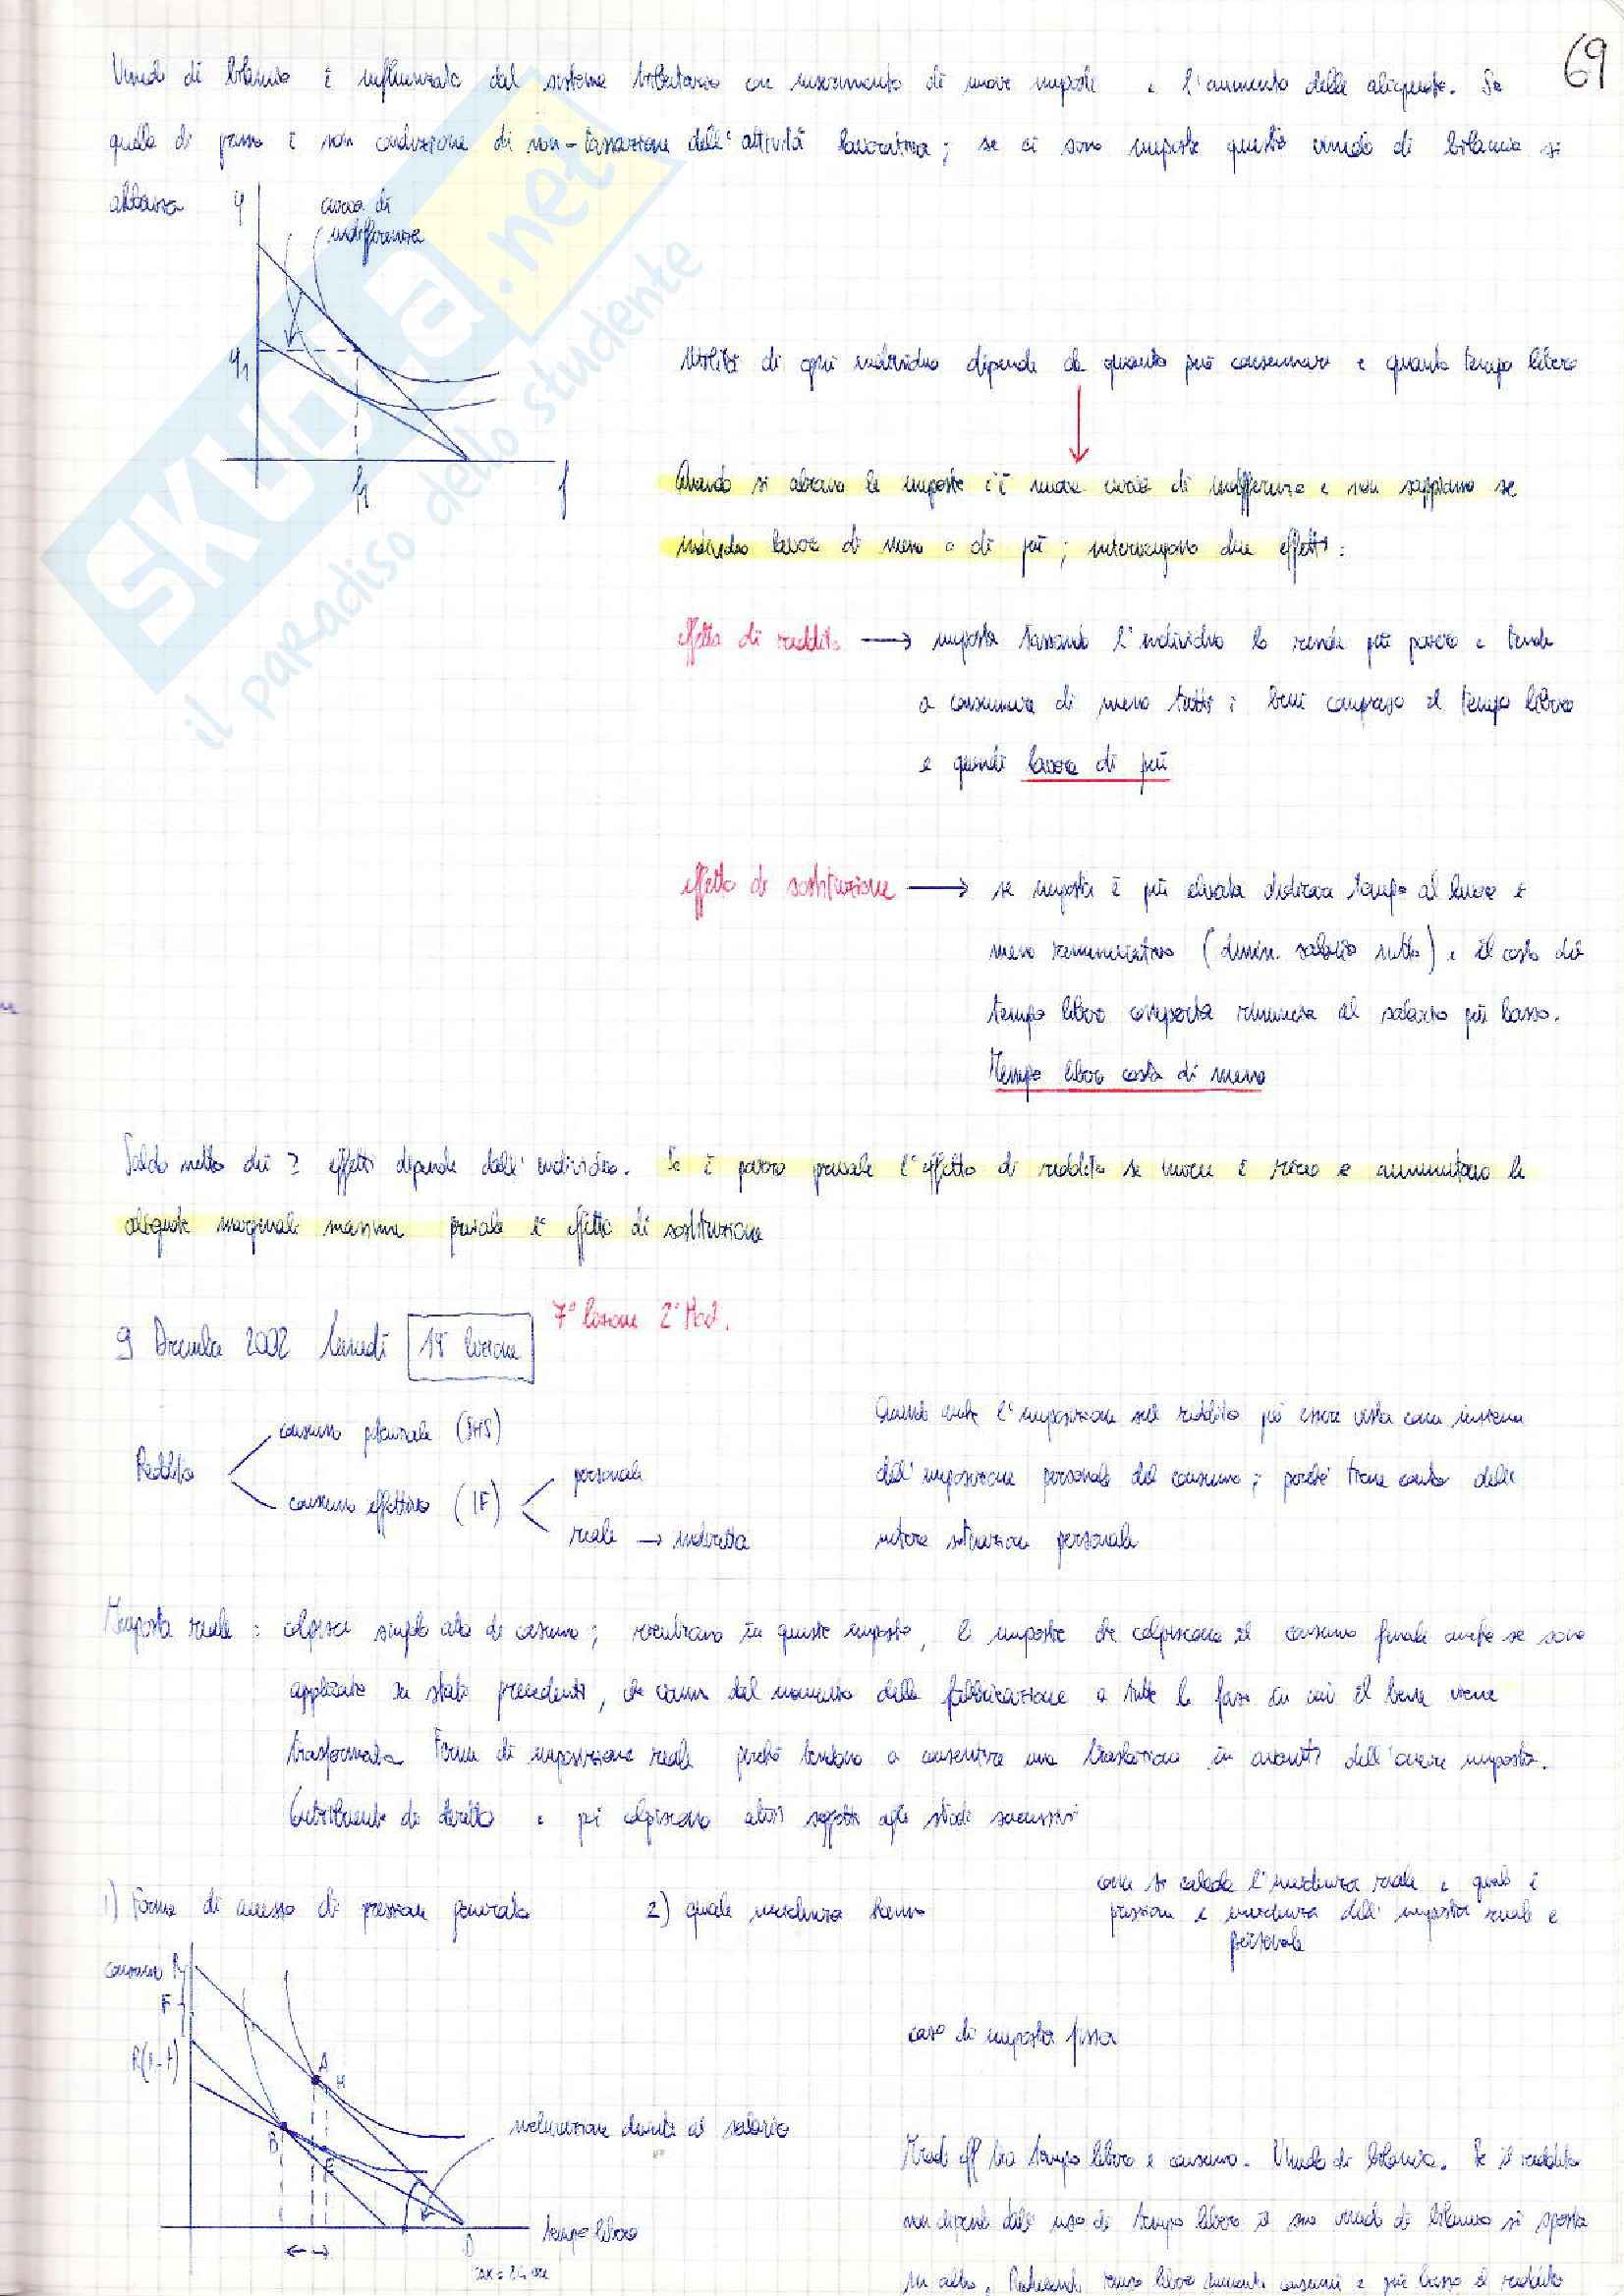 69
Vincolo di bilancio è influenzato dal sistema tributario con inserimento di nuove imposte e l'aumento delle aliquote. Se
quello di prima è non condizione di non-tassazione dell'attività lavorativa; se ci sono imposte questo vincolo di bilancio si
abbassa
curva di
indifferenza
Utilità di ogni individuo dipende da quanto può consumare e quanto tempo libero
Quando si alzano le imposte c'è nuova curva di indifferenza e non sappiamo se
individuo lavora di meno o di più; intervengono due effetti:
effetto di reddito → imposta tassando l'individuo lo rende più povero e tende
a consumare di meno tutti i beni compreso il tempo libero
e quindi lavora di più
effetto di sostituzione → se imposta è più elevata dedicare tempo al lavoro è
meno remunerativo (dimin. salario netto) e il costo del
tempo libero comporta rinuncia al salario più basso.
Tempo libero costa di meno
Saldo netto dei 2 effetti dipende dall'individuo. Se è povero prevale l'effetto di reddito se invece è ricco e aumentano le
aliquote marginali massime prevale l'effetto di sostituzione
9 Dicembre 2002 lunedì 19ª lezione 7ª lezione 2° Mod.
Reddito
consumo potenziale (SHS)
consumo effettivo (IF)
personale
reale → indiretta
Quindi anche l'imposizione sul reddito può essere vista come insieme
dell'imposizione personale del consumo; perché tiene conto della
intera situazione personale
Imposta reale: colpisce singolo atto di consumo; rientrano in queste imposte, le imposte che colpiscono il consumo finale anche se sono
applicate in stadi precedenti, che vanno dal momento della fabbricazione a tutte le fasi in cui il bene viene
trasformato. Forme di imposizione reale perché tendono a consentire una traslazione in avanti dell'onere imposta.
Contribuente di diritto e poi colpiscono altri soggetti agli stadi successivi
1) Forme di eccesso di pressione generale
2) quale incidenza hanno
come si calcola l'incidenza reale e qual è
pressione e incidenza dell'imposta reale e
personale
consumo R
F
R(1-t)
A
H
B
C
D
inclinazione dovuta al salario
tempo libero
MAX = 24 ore
caso di imposta fissa
Trade off tra tempo libero e consumo. Vincolo di bilancio. Se il reddito
non dipende dall'uso di tempo libero il suo vincolo di bilancio si sposta
in alto. Riducendo tempo libero aumenta consumi e più basso il reddito